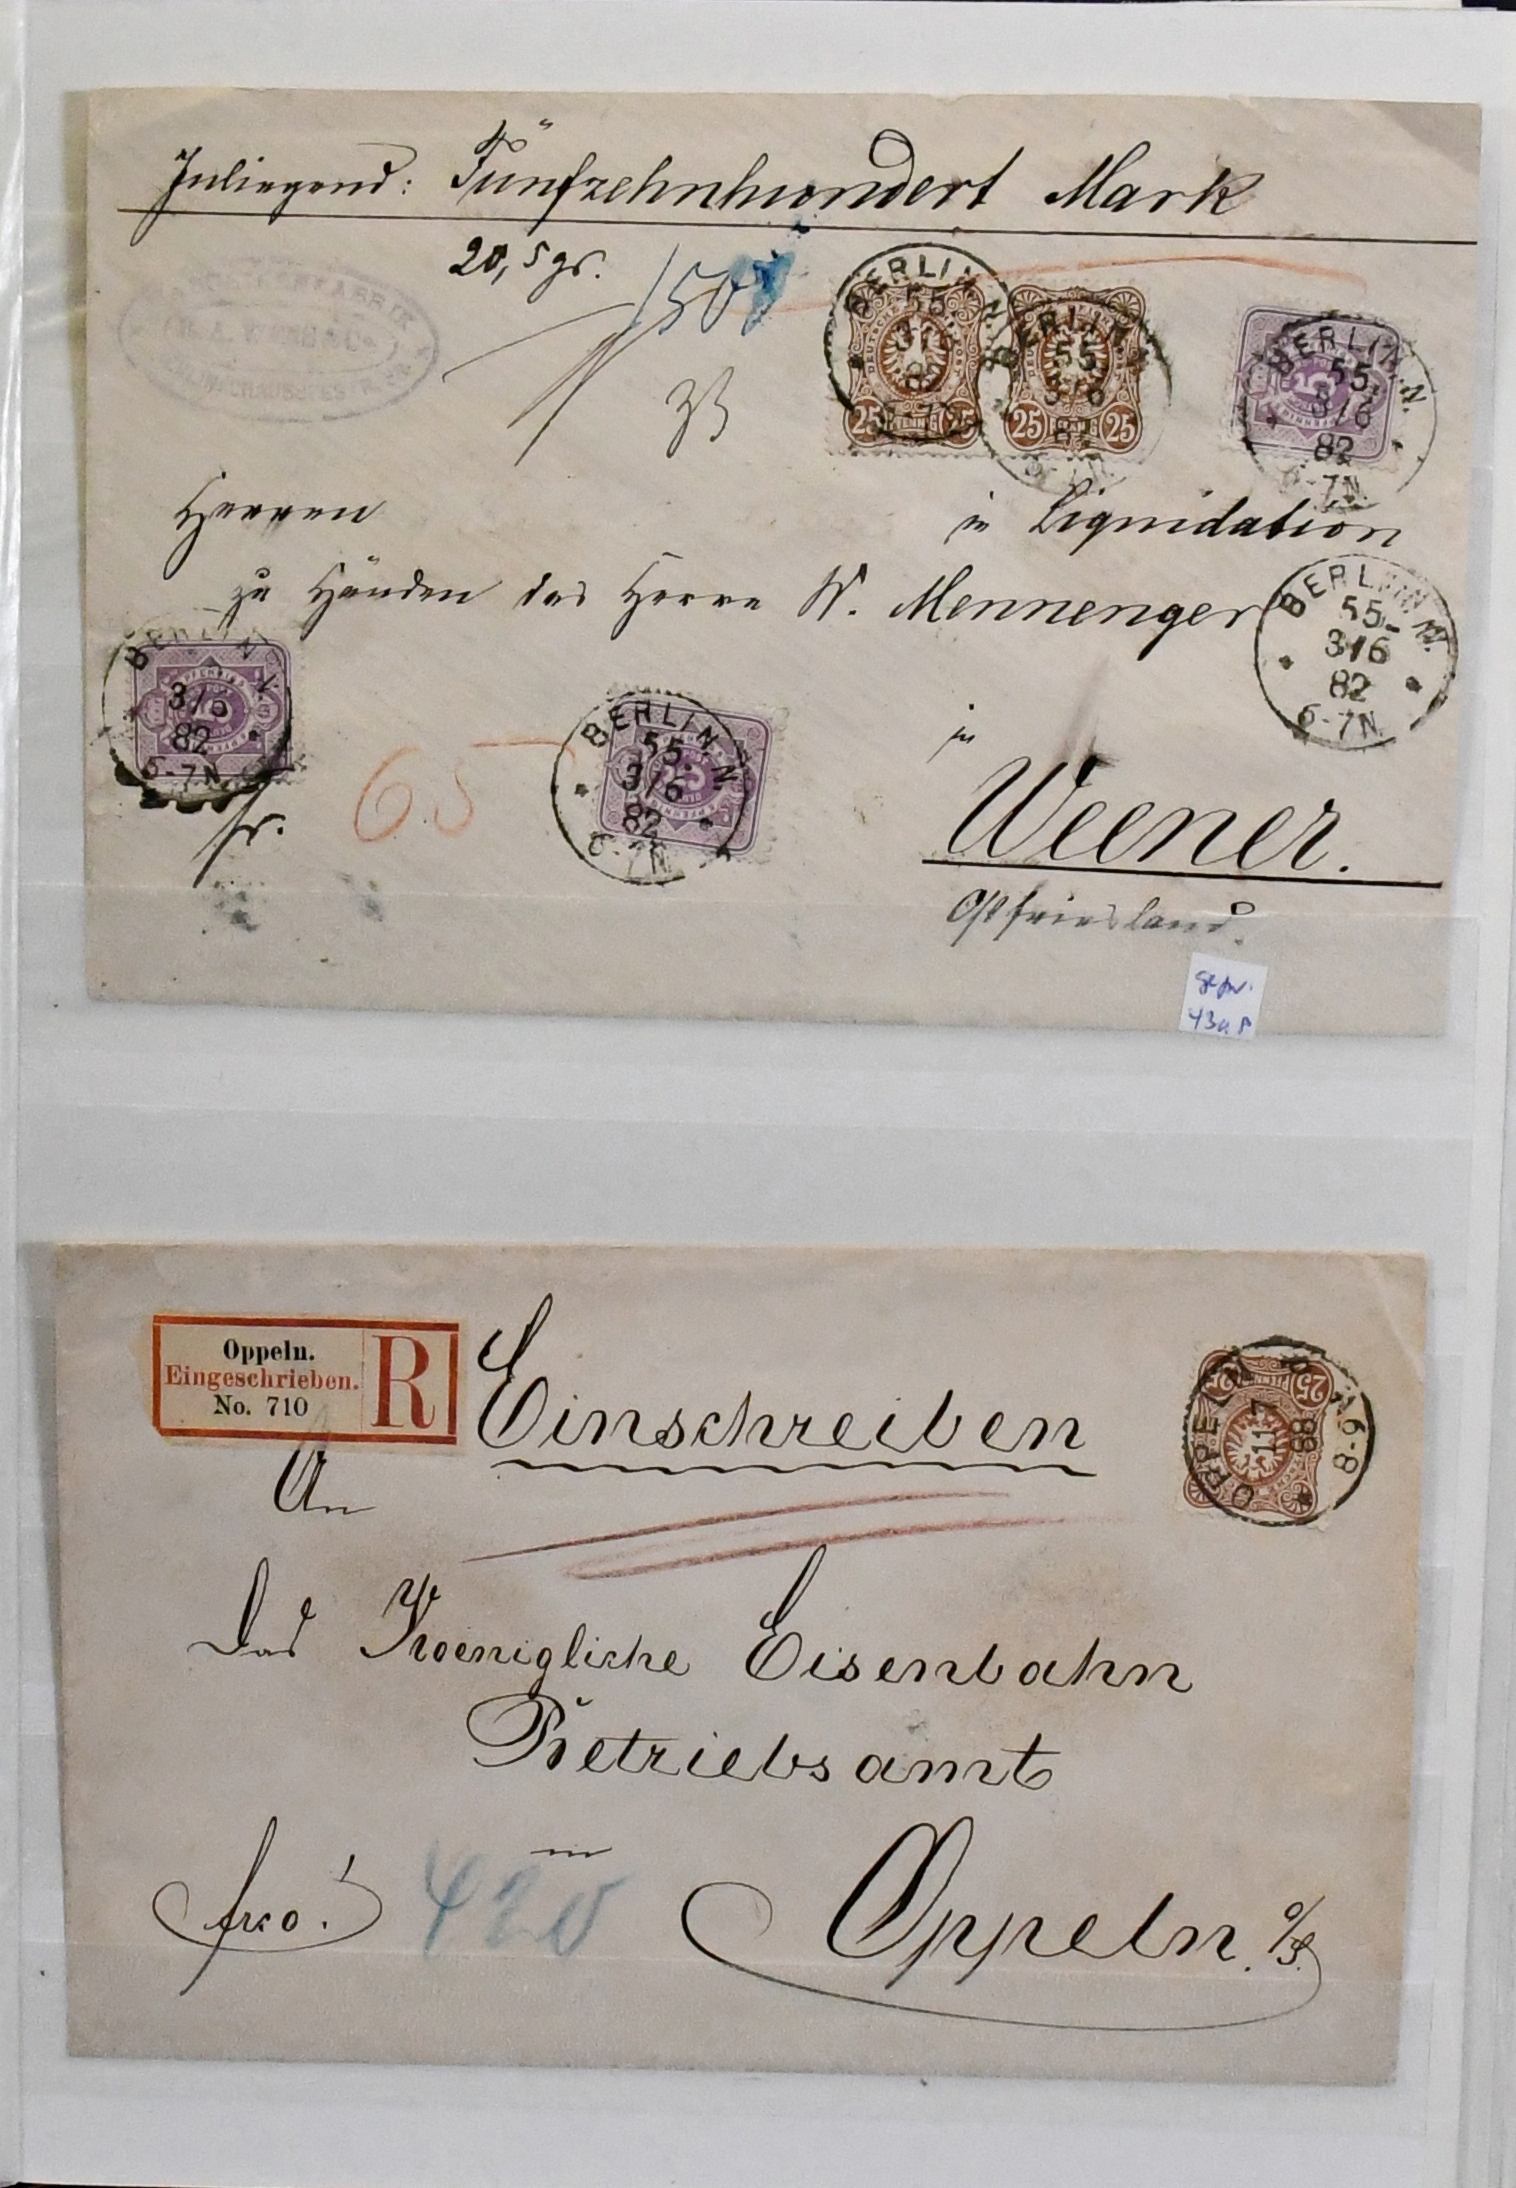 Inliegend: Fünfzehnhundert Mark
20,5 gr.
150
BERLIN
55
3/6
82
6-7N
DEUTSCHE REICHS-POST
25 PFENNIG 25
BERLIN N.
55.
3/6
82
6-7N.
DEUTSCHE REICHS-POST
25 PFENNIG 25
BERLIN. N.
55.
3/6
82
6-7N.
5
Herren
in Liquidation
zu Händen des Herrn W. Mennenger
BERLIN N.
55.
3/6
82
6-7N
BERLIN N
3/6
82
6-7N
BERLIN. N
55.
3/6
82
6-7N
fr.
65
in
Weener.
Ostfriesland.
gepr.
Oppeln.
Eingeschrieben.
No. 710
R
Einschreiben
OPPELN
7
11
88
6-8
25 PFENNIG 25
An
Das Koenigliche Eisenbahn
Betriebsamt
in
frco!
420
Oppeln. o/S.